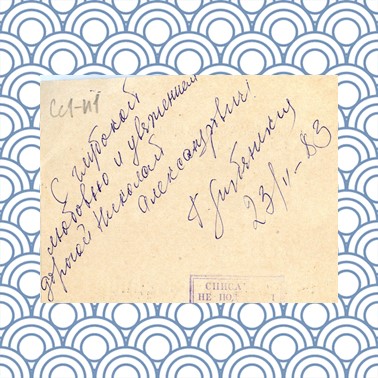 С глубокой
любовью и уважением
дорогой Николай
Александрович!
23/II-83
СПИСА
НЕ ПО